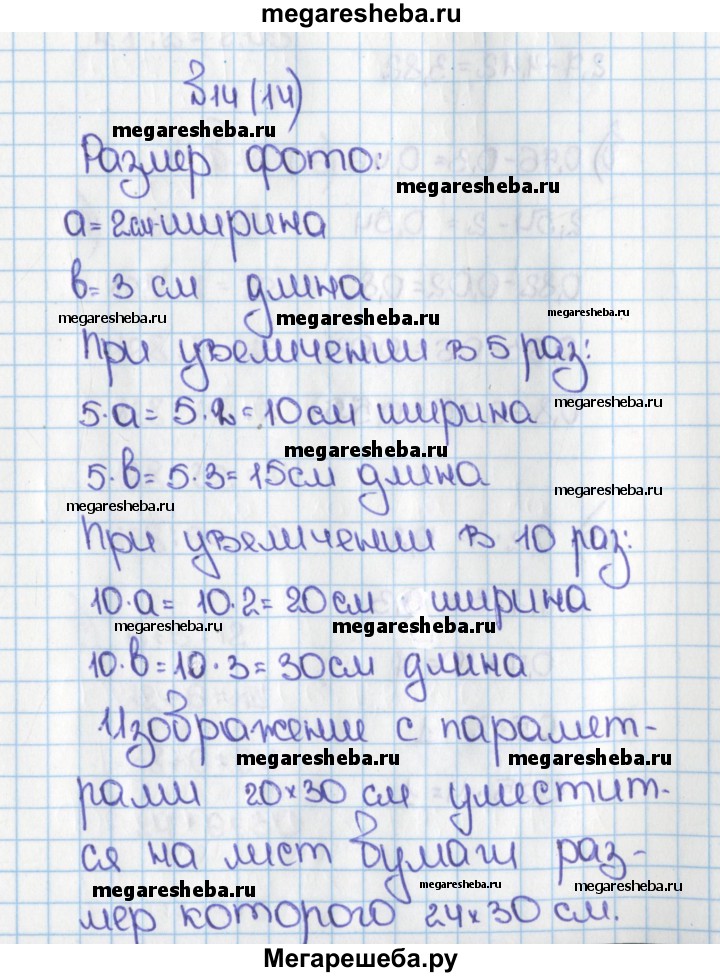 megaresheba.ru
№14 (14)
megaresheba.ru
Размер фото:
megaresheba.ru
a = 2 см - ширина
в = 3 см длина
megaresheba.ru megaresheba.ru megaresheba.ru
При увеличении в 5 раз:
megaresheba.ru
5·a = 5·2 = 10 см ширина
megaresheba.ru
5·в = 5·3 = 15 см длина
megaresheba.ru
megaresheba.ru
При увеличении в 10 раз:
10·a = 10·2 = 20 см ширина
megaresheba.ru megaresheba.ru
10·в = 10·3 = 30 см длина
Изображение с парамет-
megaresheba.ru megaresheba.ru
рами 20×30 см уместит-
ся на лист бумаги раз-
megaresheba.ru megaresheba.ru megaresheba.ru
мер которого 24×30 см.
Мегарешеба.ру